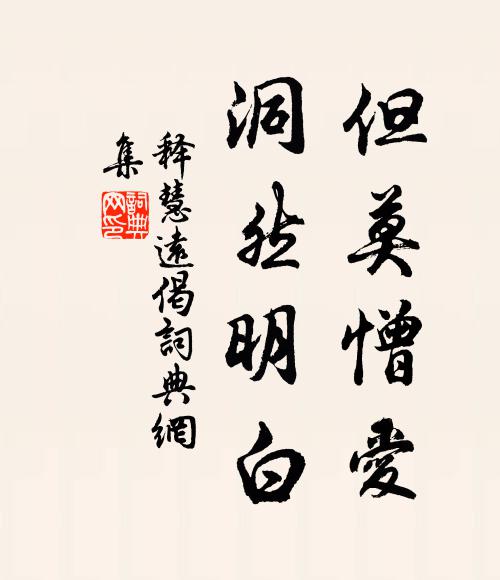 但莫憎愛
洞然明白
释慧遠偈詞典網
集
詞典
网印